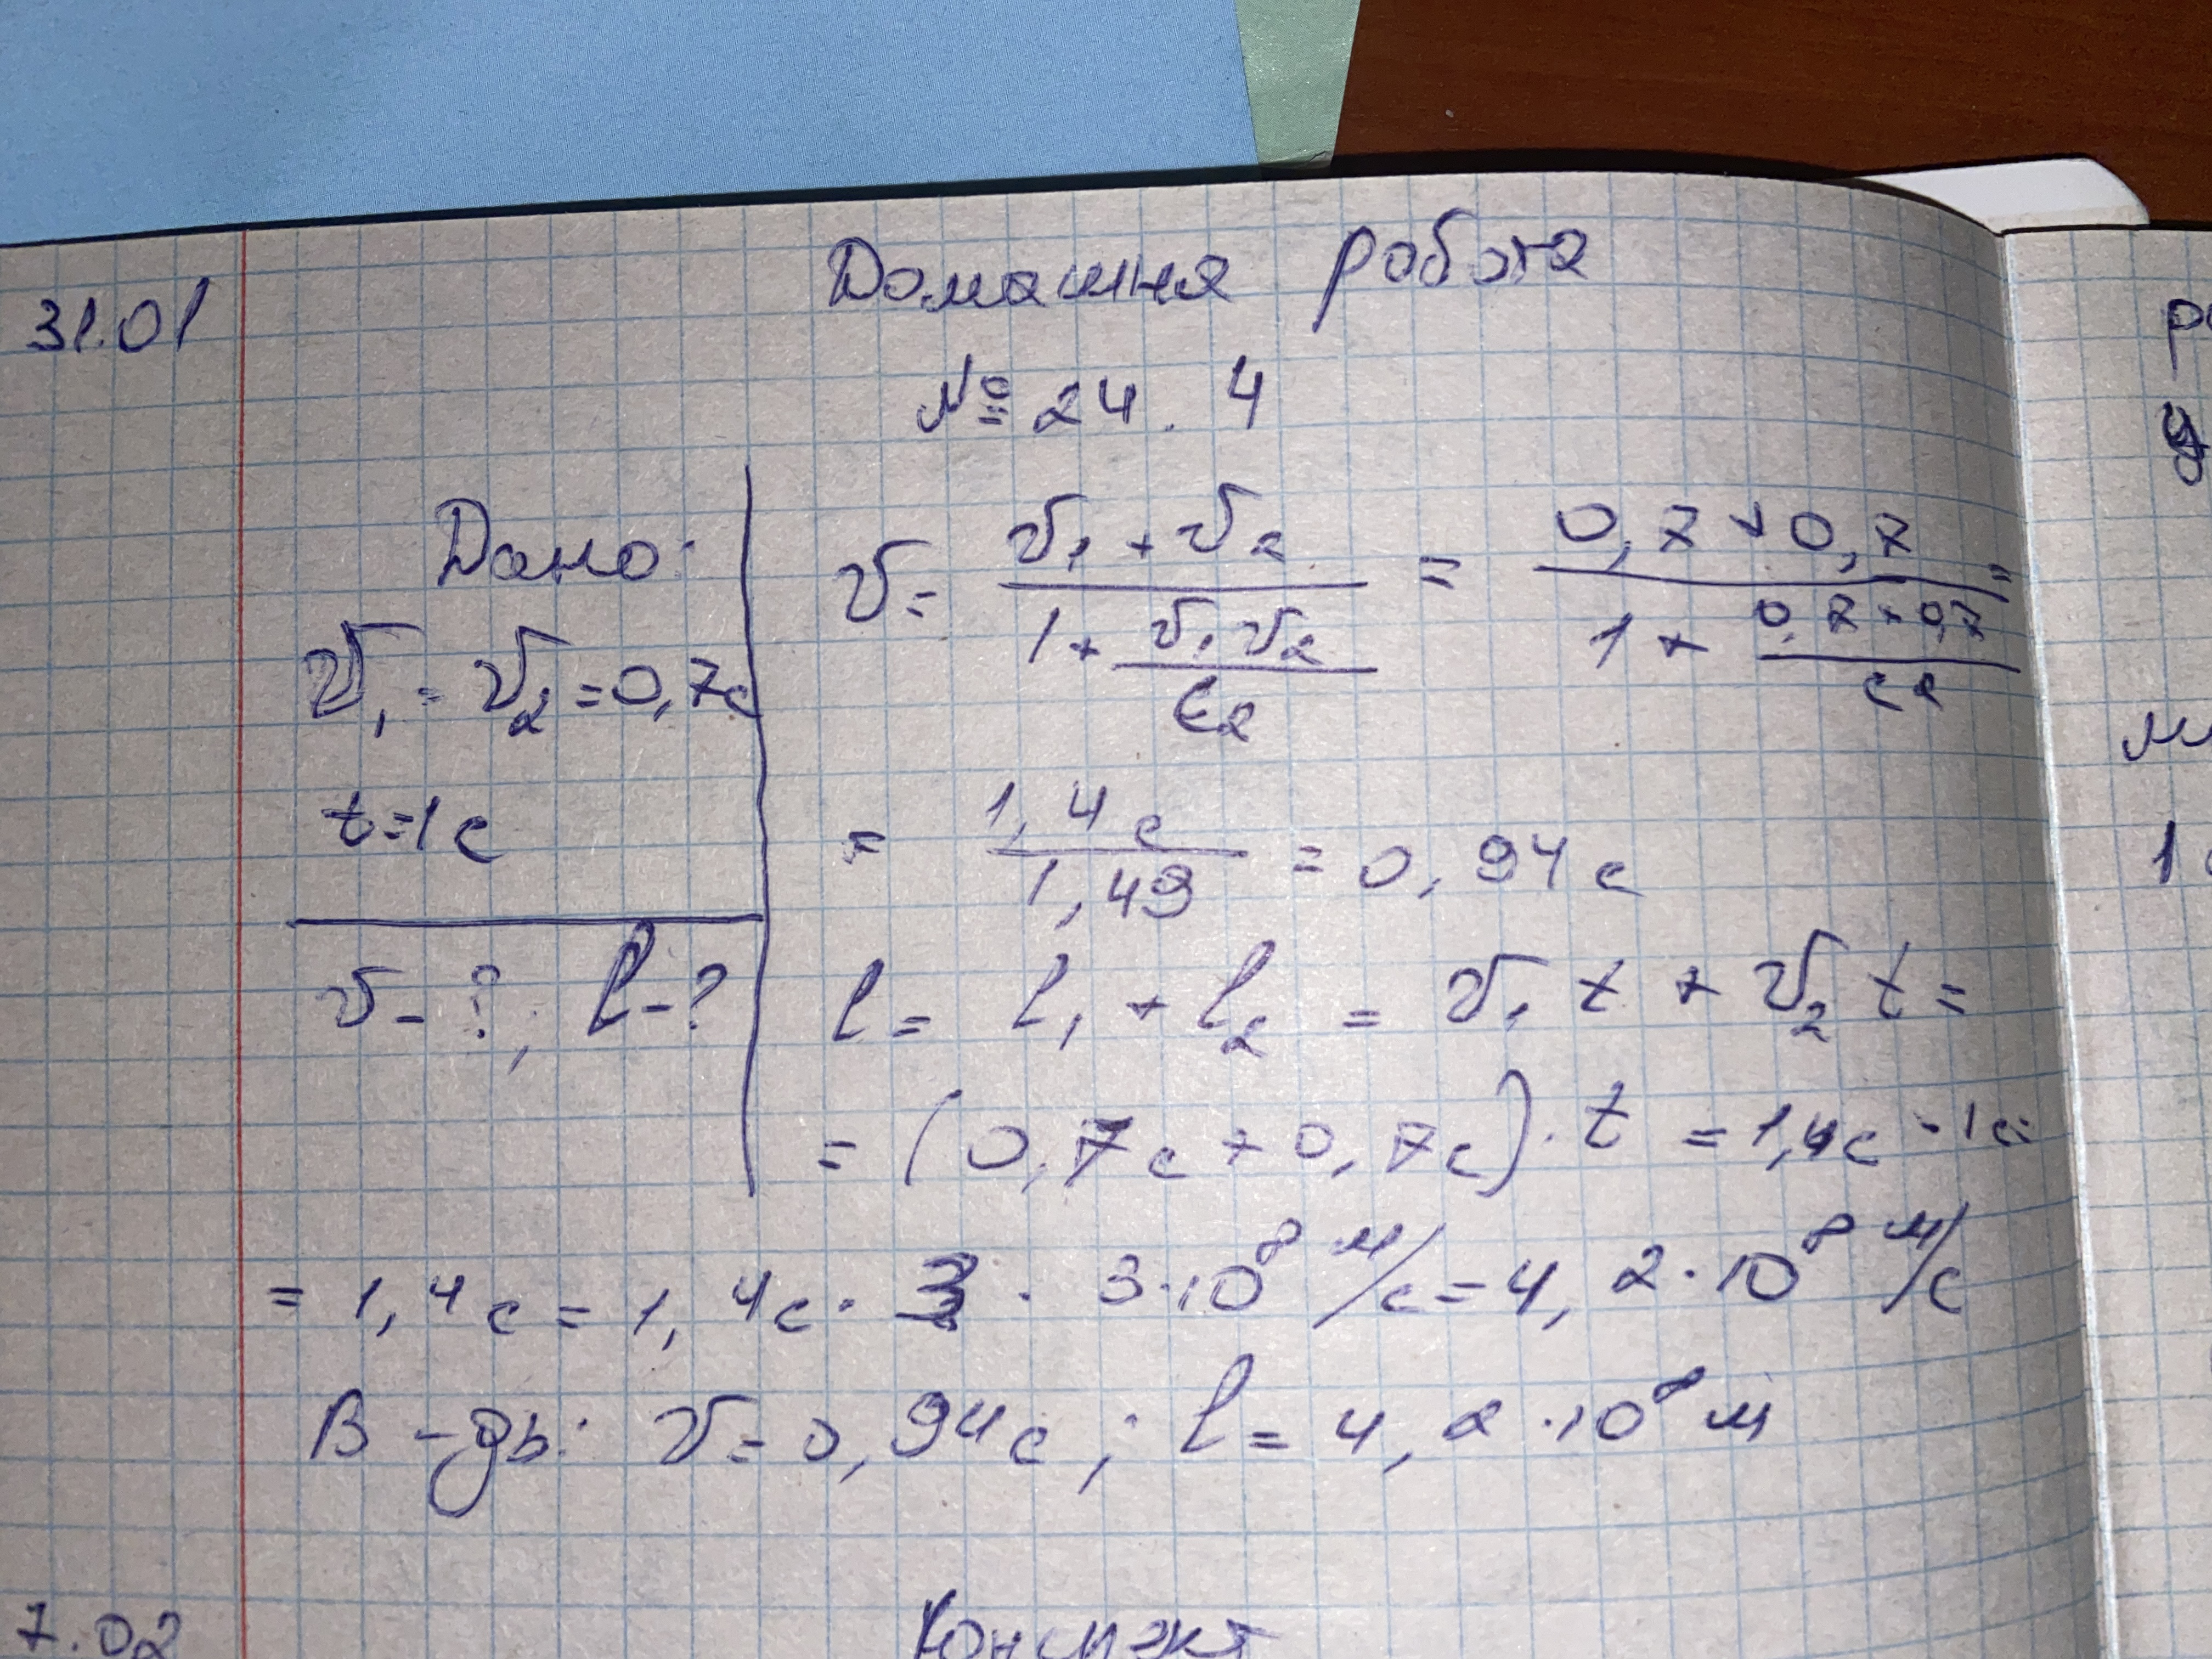 31.01
Домашня робота
№ 24. 4
Дано:
v₁ = v₂ = 0,7c
t = 1 c
v - ?, l - ?
v = (v₁ + v₂) / (1 + v₁v₂ / c2) = (0,7 + 0,7) / (1 + 0,7 + 0,7 / c2) =
= 1,4 c / 1,49 = 0,94 c
l = l₁ + l₂ = v₁ t + v₂ t =
= (0,7c + 0,7c) · t = 1,4c · 1c =
= 1,4 c = 1,4c · · 3·10⁸ м/с = 4,2·10⁸ м/с
В-дь: v = 0,94 c ; l = 4,2 · 10⁸ м
7.02
Конспект